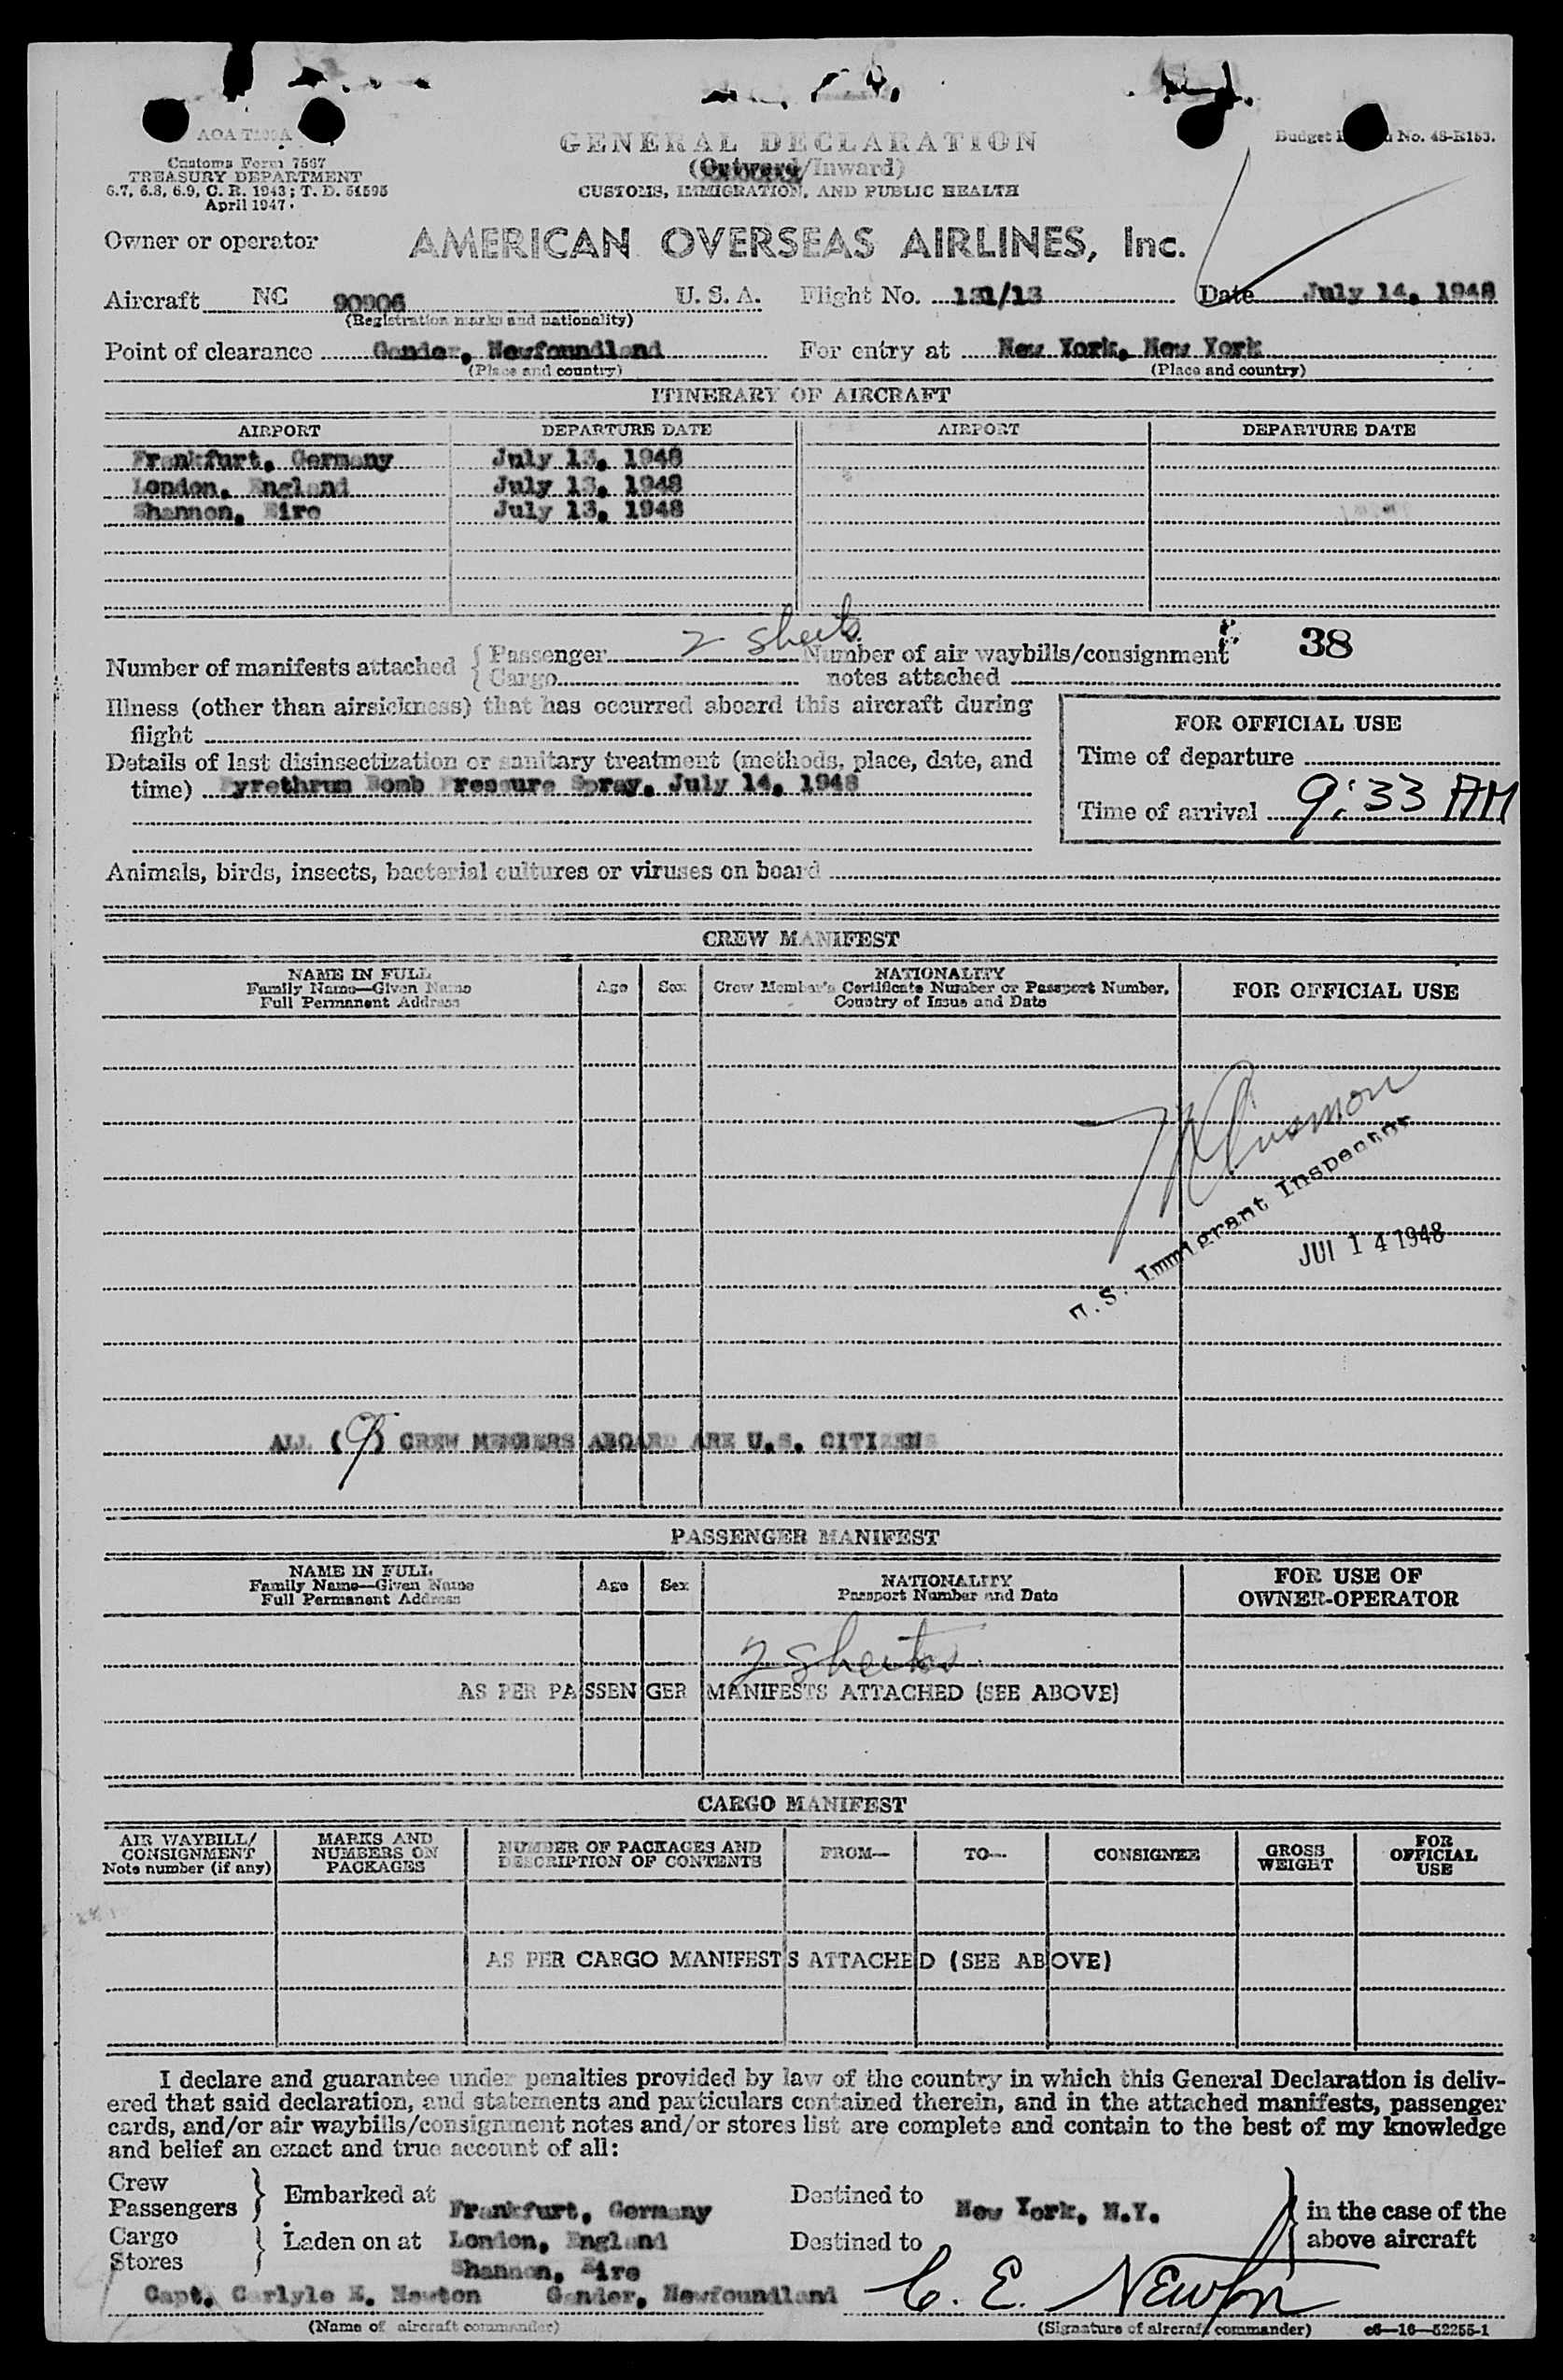 AOA T
Budget No. 48-R153.
Customs Form 7507
TREASURY DEPARTMENT
6.7, 6.8, 6.9, C. R. 1943; T. D. 51595
April 1947.
GENERAL DECLARATION
(Outward/Inward)
CUSTOMS, IMMIGRATION, AND PUBLIC HEALTH
Owner or operator AMERICAN OVERSEAS AIRLINES, Inc.
Aircraft NC 90906 U. S. A. Flight No. 131/13 Date July 14, 1948
(Registration marks and nationality)
Point of clearance Gander, Newfoundland For entry at New York, New York
(Place and country) (Place and country)
ITINERARY OF AIRCRAFT
AIRPORT DEPARTURE DATE AIRPORT DEPARTURE DATE
Frankfurt, Germany July 13, 1948
London, England July 13, 1948
Shannon, Eire July 13, 1948
Number of manifests attached { Passenger 2 sheets Number of air waybills/consignment 38
Cargo notes attached
Illness (other than airsickness) that has occurred aboard this aircraft during
flight
FOR OFFICIAL USE
Details of last disinsectization or sanitary treatment (methods, place, date, and
Time of departure
time) Pyrethrum Bomb Pressure Spray, July 14, 1948
Time of arrival 9:33 AM
Animals, birds, insects, bacterial cultures or viruses on board
CREW MANIFEST
NAME IN FULL
Family Name—Given Name
Full Permanent Address
Age Sex
NATIONALITY
Crew Member's Certificate Number or Passport Number,
Country of Issue and Date
FOR OFFICIAL USE
U.S. Immigrant Inspector
JUL 14 1948
ALL (9) CREW MEMBERS ABOARD ARE U.S. CITIZENS
PASSENGER MANIFEST
NAME IN FULL
Family Name—Given Name
Full Permanent Address
Age Sex
NATIONALITY
Passport Number and Date
FOR USE OF
OWNER-OPERATOR
2 sheets
AS PER PASSENGER MANIFESTS ATTACHED (SEE ABOVE)
CARGO MANIFEST
AIR WAYBILL/
CONSIGNMENT
Note number (if any)
MARKS AND
NUMBERS ON
PACKAGES
NUMBER OF PACKAGES AND
DESCRIPTION OF CONTENTS
FROM— TO— CONSIGNEE
GROSS
WEIGHT
FOR
OFFICIAL
USE
AS PER CARGO MANIFESTS ATTACHED (SEE ABOVE)
I declare and guarantee under penalties provided by law of the country in which this General Declaration is deliv-
ered that said declaration, and statements and particulars contained therein, and in the attached manifests, passenger
cards, and/or air waybills/consignment notes and/or stores list are complete and contain to the best of my knowledge
and belief an exact and true account of all:
Crew
Passengers } Embarked at Frankfurt, Germany Destined to New York, N.Y. } in the case of the
Cargo } Laden on at London, England Destined to above aircraft
Stores Shannon, Eire
Capt. Carlyle E. Newton Gander, Newfoundland C. E. Newton
(Name of aircraft commander) (Signature of aircraft commander) c6—16—52255-1